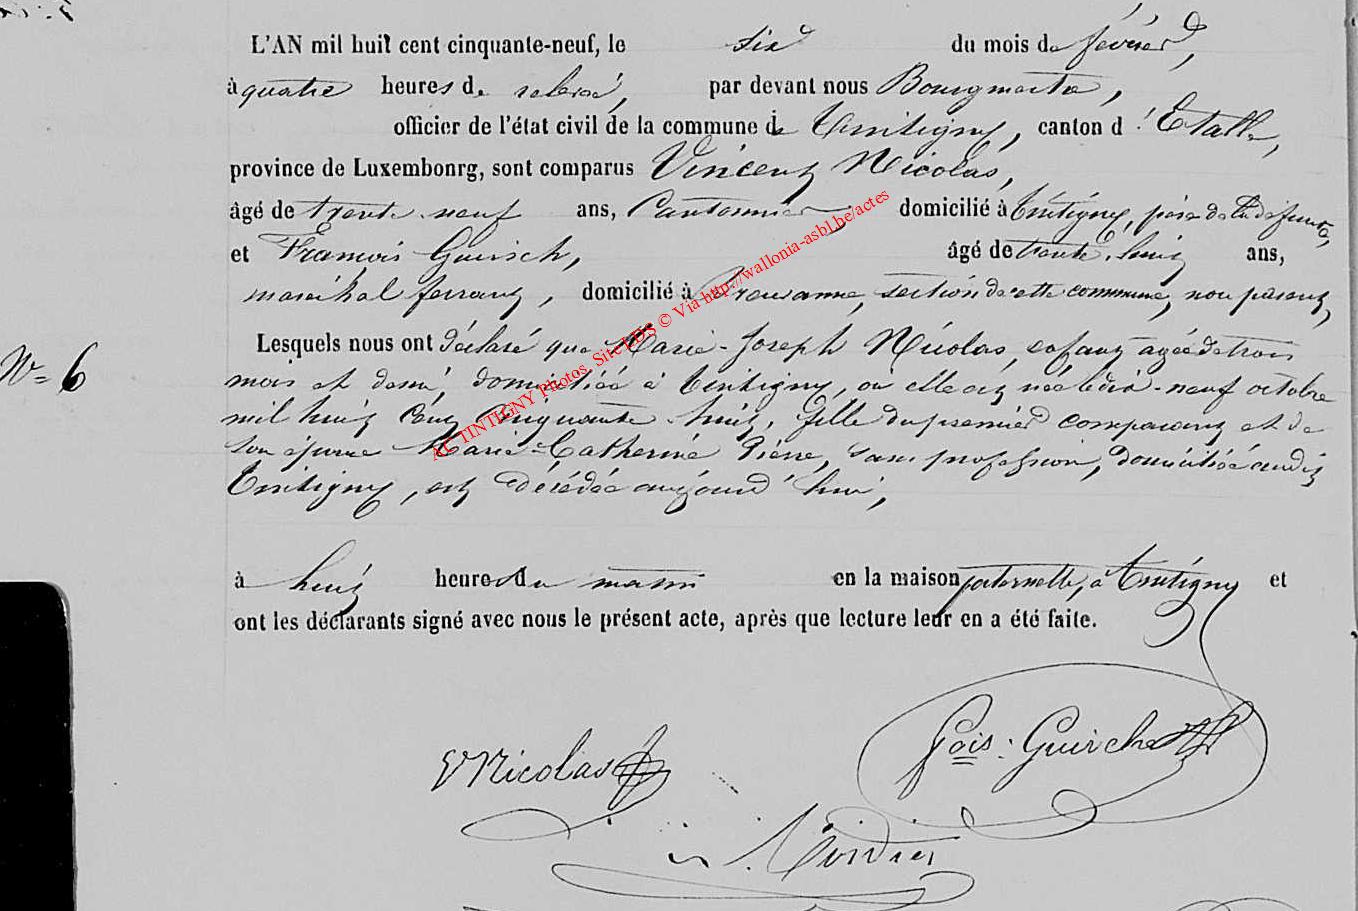 L'AN mil huit cent cinquante-neuf, le six du mois de février,
à quatre heures de relevé, par devant nous Bourgmestre,
officier de l'état civil de la commune de Tintigny, canton d'Etalle,
province de Luxembonrg, sont comparus Vincent Nicolas,
âgé de trente-neuf ans, Cantonnier domicilié à Tintigny, père de la défunte,
et François Guirsch, âgé de trente-huit ans,
maréchal ferrant, domicilié à section de cette commune, non parent,
Lesquels nous ont déclaré que Marie-Joseph Nicolas, enfant agée de trois
N= 6
mois et demi, domiciliée à Tintigny, où elle est née le dix-neuf octobre
mil huit cent cinquante-huit, fille du premier comparant et de
son épouse Marie-Catherine Pierre, sans profession, domiciliée audit
Tintigny, est décédée aujourd'hui,
à huit heures du matin en la maison paternelle, à Tintigny et
ont les déclarants signé avec nous le présent acte, après que lecture leur en a été faite.
VNicolas
Fçois: Guirche
AC TINTIGNY Photos Site © Via http://wallonia-asbl.be/actes